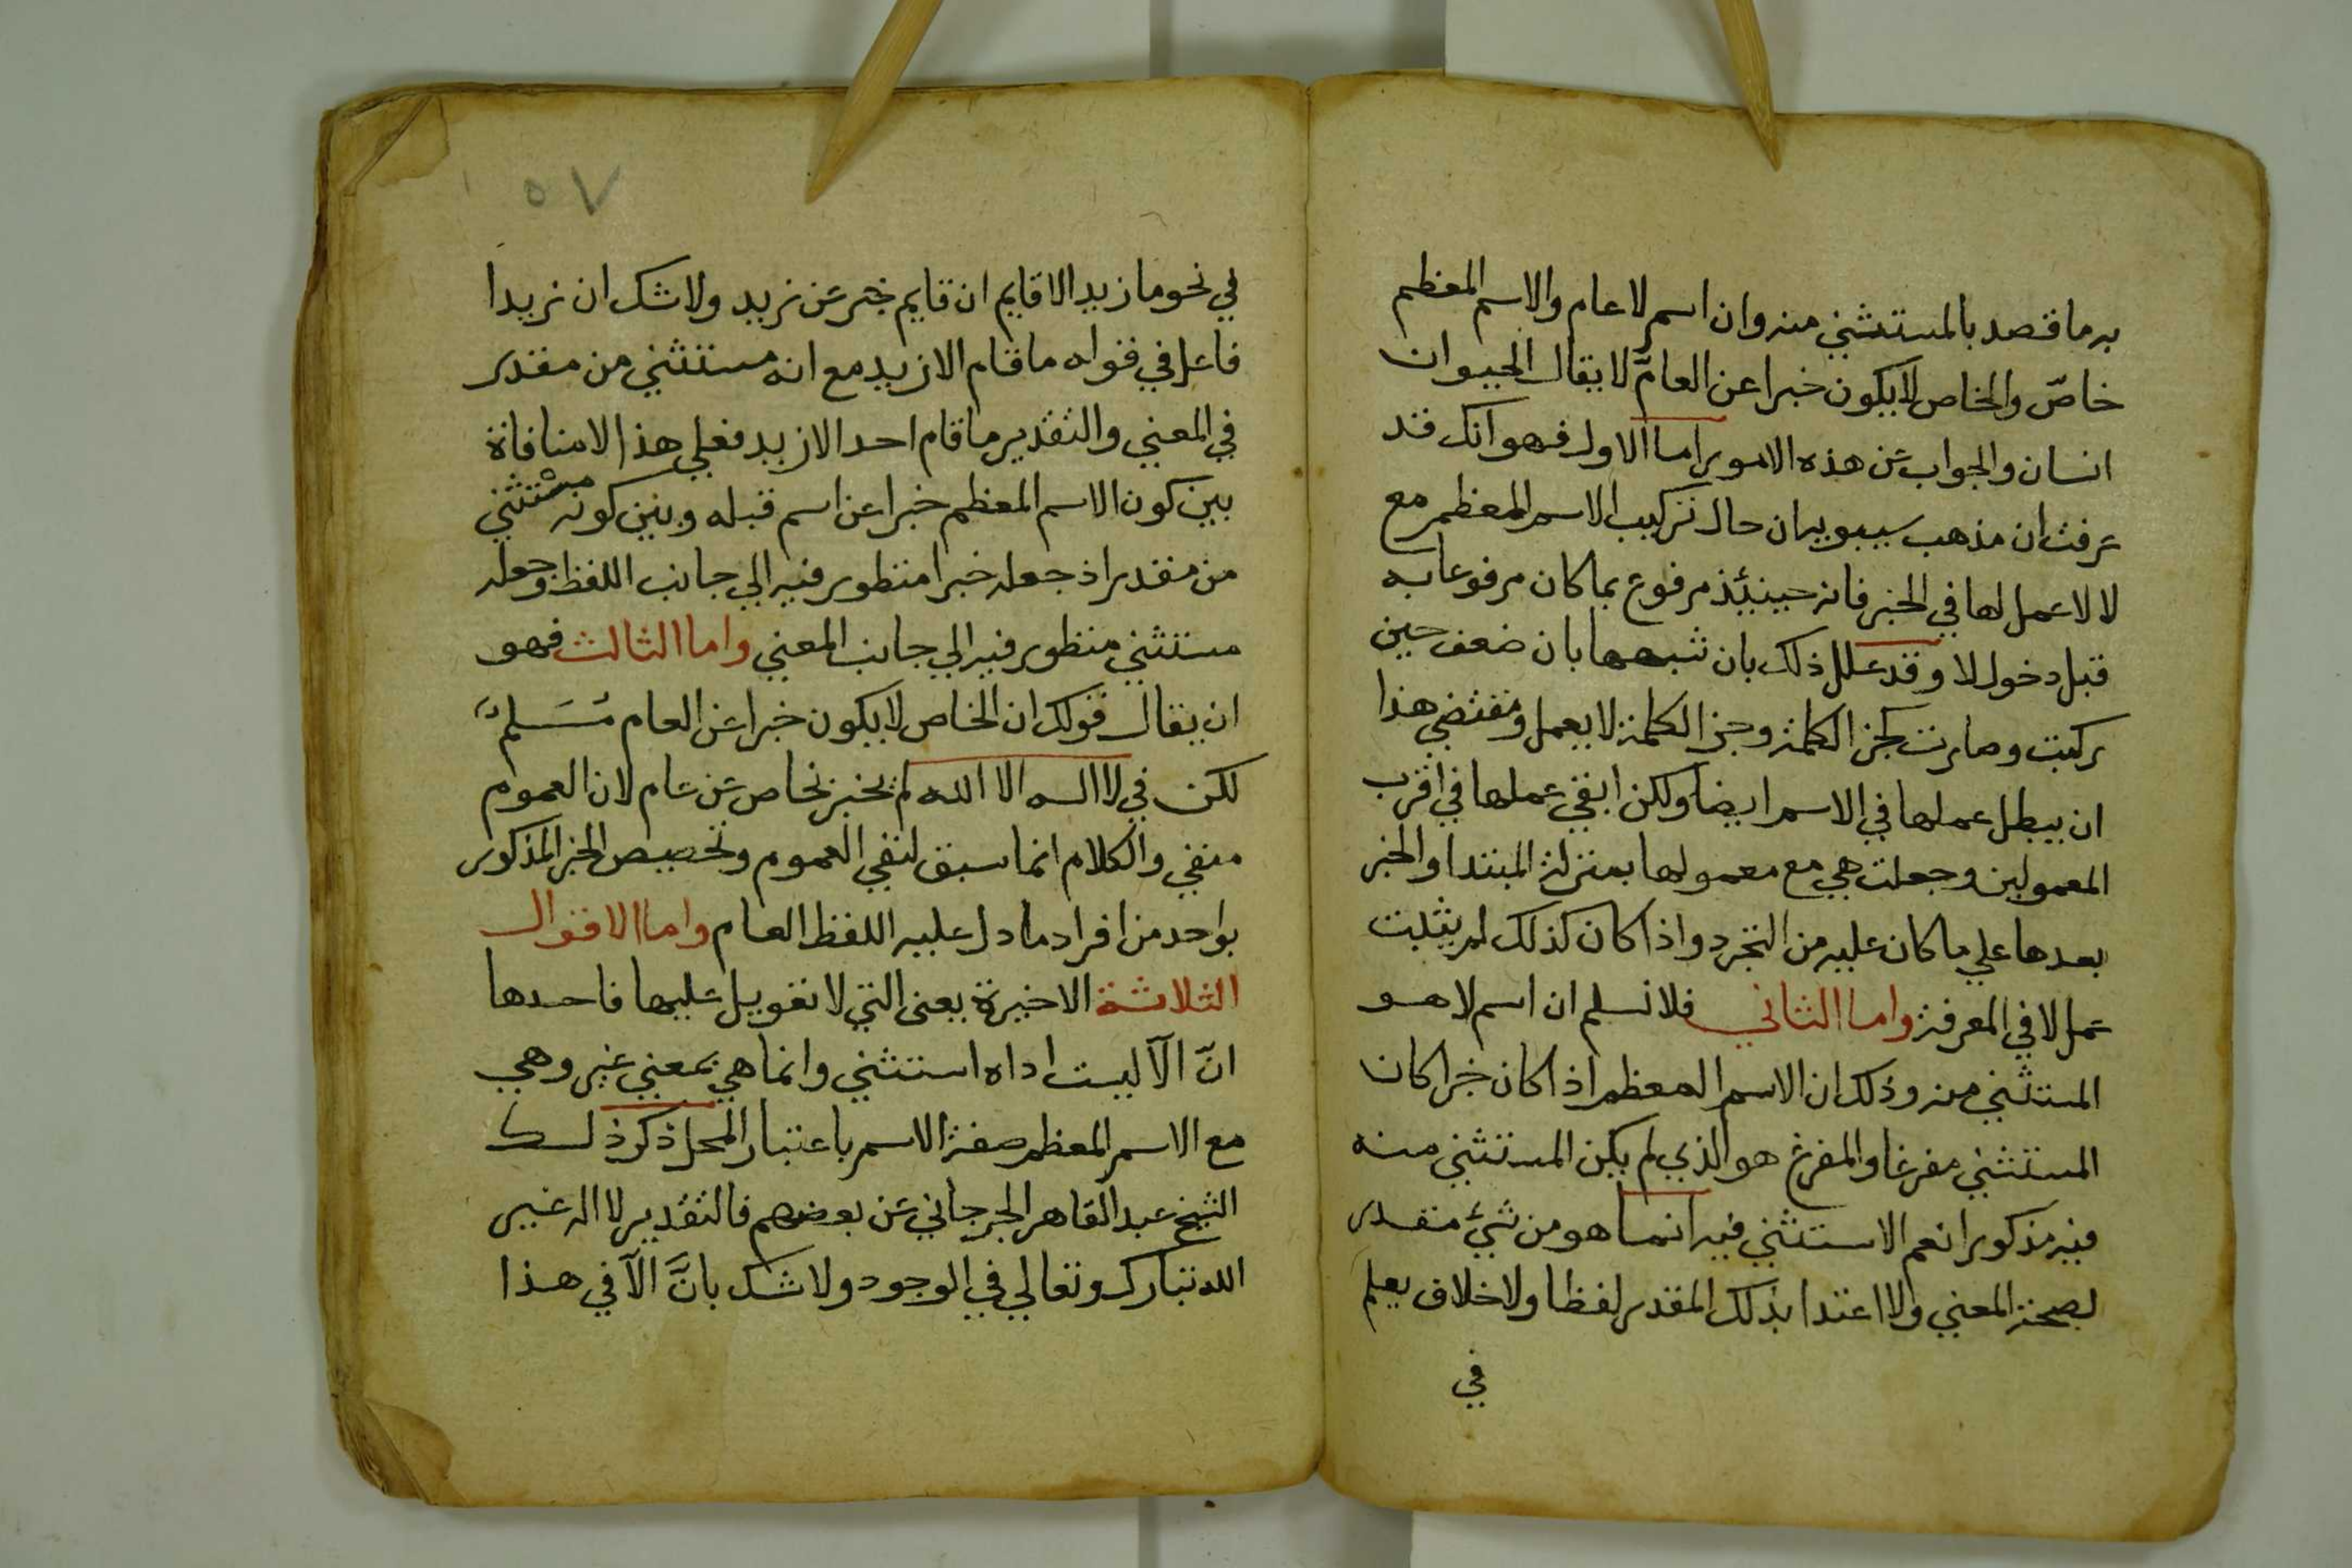 به ما قصد بالمستثني منه وان اسم لا عام والاسم المعظم
خاصّ والخاص لا يكون خبرا عن العامّ لا يقال الحيوان
انسان والجواب عن هذه الامور اما الاول فهو انك قد
عرفت ان مذهب سيبويه ان حال تركيب الاسم المعظم مع
لا لا عمل لها في الخبر فانه حينئذ مرفوع بما كان مرفوعا به
قبل دخول لا وقد علل ذلك بان شبهها بان ضعف حين
ركبت وصارت كجز الكلمة وجز الكلمة لا يعمل ومقتضي هذا
ان يبطل عملها في الاسم ايضا ولكن ابقي عملها في اقرب
المعمولين وجعلت هي مع معمولها بمنزلة المبتدا والخبر
بعدها علي ما كان عليه من التجرد واذا كان كذلك لم يثبت
عمل لا في المعرفة واما الثاني فلا نسلم ان اسم لا هو
المستثني منه وذلك ان الاسم المعظم اذا كان خبرا كان
المستثني مفرغا والمفرغ هو الذي لم يكن المستثني منه
فيه مذكورا نعم الاستثني فيه انما هو من شئ مقدر
لصحة المعني ولا اعتدا بذلك المقدر لفظا ولا خلاف يعلم
في
٥٧
في نحو ما زيد الا قايم ان قايم خبر عن زيد ولا شك ان زيدا
فاعل في قوله ما قام الا زيد مع انه مستثني من مقدر
في المعني والتقدير ما قام احد الا زيد فعلي هذا لا منافاة
بين كون الاسم المعظم خبرا عن اسم قبله وبين كونه مستثني
من مقدر اذ جعله خبرا منظور فيه الي جانب اللفظ وجعله
مستثني منظور فيه الي جانب المعني واما الثالث فهو
ان يقال قولك ان الخاص لا يكون خبرا عن العام مُسَلم
لكن في لا اله الا الله لم يخبر بخاص عن عام لان العموم
منفي والكلام انما سبق لنفي العموم وتخصيص الخبر المذكور
بواحد من افراد ما دل عليه اللفظ العام واما الاقوال
الثلاثة الاخيرة يعنى التي لا تعويل عليها فاحدها
انّ الّا ليست اداه استثني وانما هي بمعني غير وهي
مع الاسم المعظم صفة الاسم باعتبار المحل ذكر ذلك
الشيخ عبد القاهر الجرجاني عن بعضهم فالتقدير لا اله غير
الله تبارك وتعالي في الوجود ولا شك بانَّ الّا في هذا